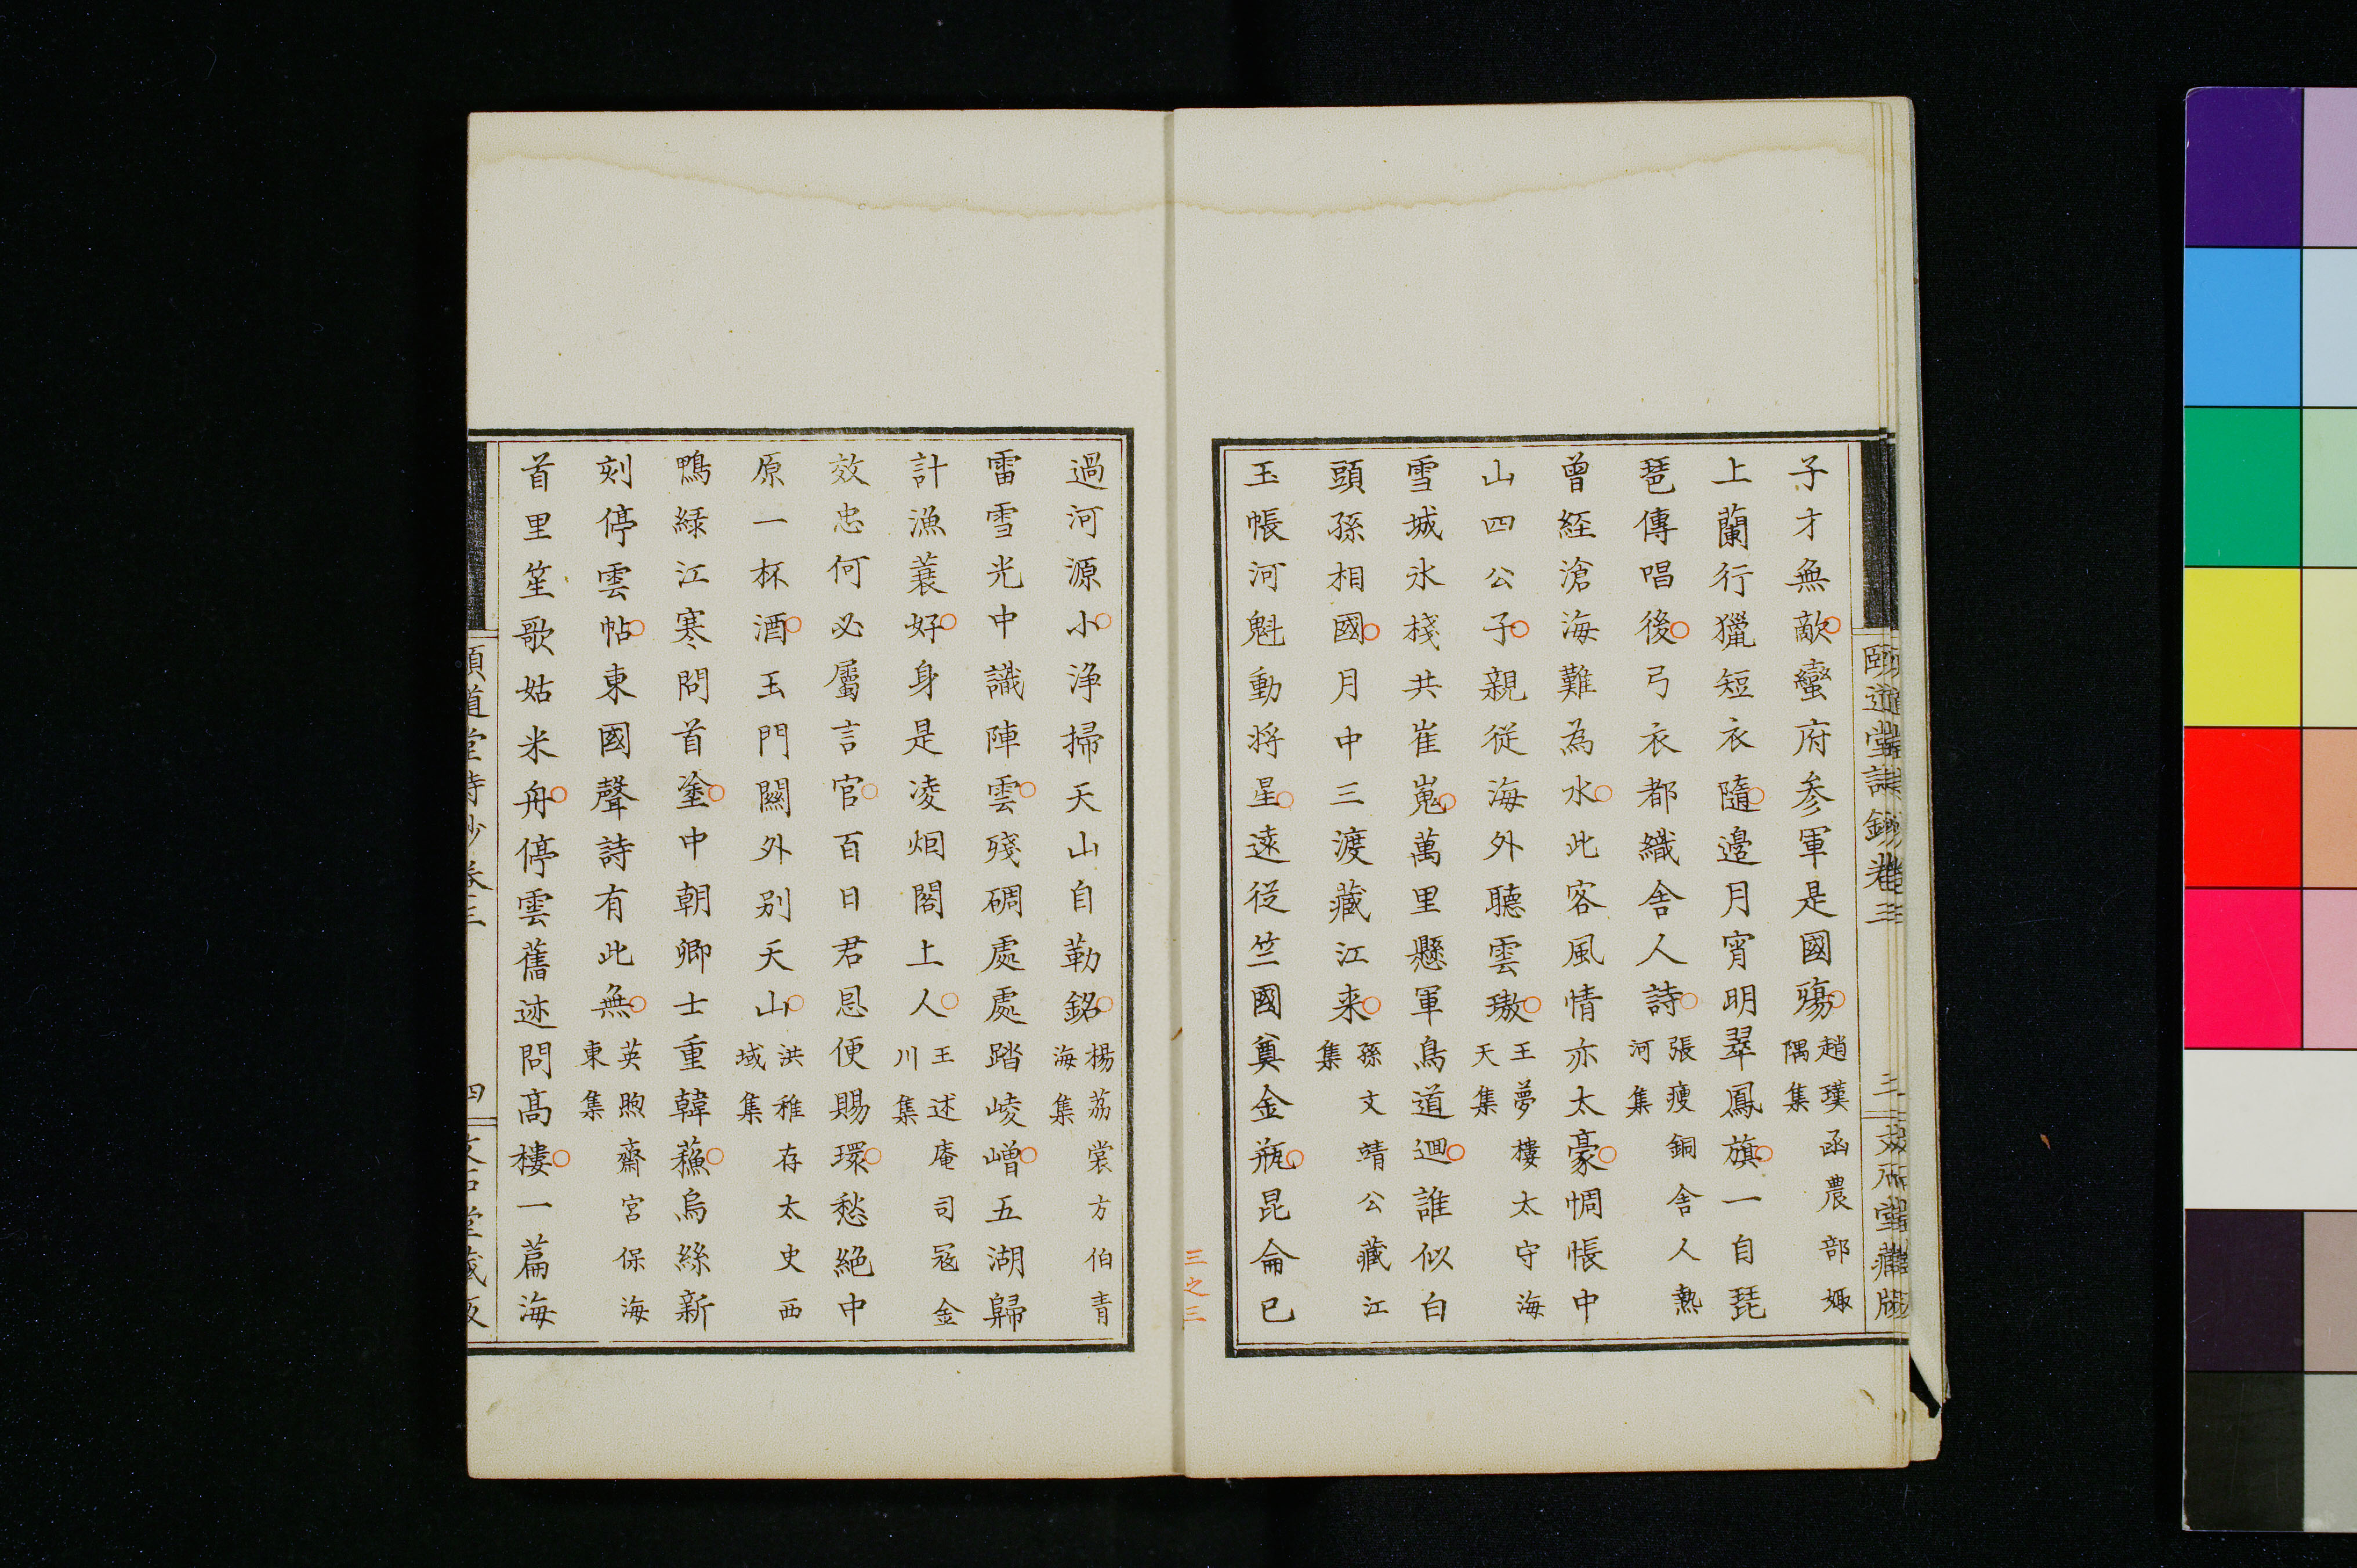 子才無敵蠻府参軍是國殤趙璞函農部娵
隅集
上蘭行獵短衣隨邊月宵明翠鳳旗一自琵
琶傳唱後弓衣都織舍人詩張瘦銅舍人熱
河集
曾経滄海難為水此客風情亦太豪惆悵中
山四公子親從海外聽雲璈王夢樓太守海
天集
雪城氷棧共崔嵬萬里懸軍鳥道迴誰似白
頭孫相國月中三渡藏江来孫文靖公藏江
集
玉帳河魁動将星遠従竺國奠金瓶昆侖已
三之三
過河源小浄掃天山自勒銘楊荔裳方伯青
海集
雷雪光中識陣雲殘碉處處踏崚嶒五湖歸
計漁蓑好身是凌烟閣上人王述庵司冦金
川集
效忠何必屬言官百日君恩便賜環愁絶中
原一杯酒玉門關外别天山洪稚存太史西
域集
鴨緑江寒問首塗中朝卿士重韓蘓烏絲新
刻停雲帖東國聲詩有此無英煦齋宮保海
東集
首里笙歌姑米舟停雲舊迹問髙樓一篇海
頤道堂詩鈔卷三
四